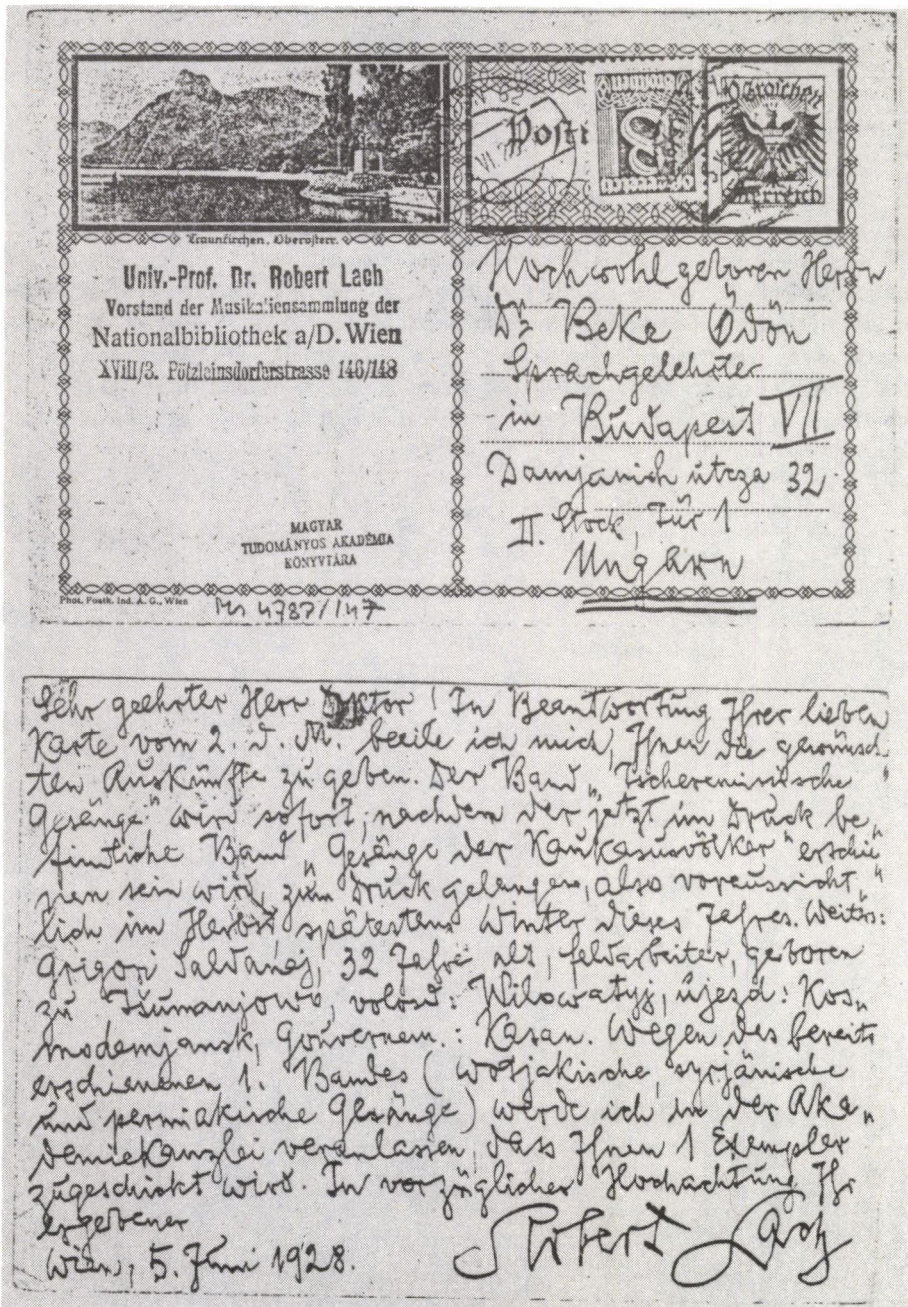 Posti
8
Groschen
Österreich
Traunkirchen, Oberösterr.
Univ.-Prof. Dr. Robert Lach
Vorstand der Musikaliensammlung der
Nationalbibliothek a/D. Wien
XVIII/3. Pötzleinsdorferstrasse 146/148
Hochwohlgeboren Herrn
Dr Beke Ödön
Sprachgelehrter
in Budapest VII
Damjanich utcza 32
II. Stock, Tür 1
Ungarn
MAGYAR
TUDOMÁNYOS AKADÉMIA
KÖNYVTÁRA
Phot. Postk. Ind. A. G., Wien
Ms 4787/147
Sehr geehrter Herr Doktor! In Beantwortung Ihrer lieben
Karte vom 2. d. M. beeile ich mich, Ihnen die gewünsch
ten Auskünfte zu geben. Der Band „Tscheremissische
Gesänge" wird sofort, nachdem der jetzt im Druck be„
findliche Band „Gesänge der Kaukasusvölker" erschie„
nen sein wird, zum Druck gelangen, also voraussicht„
lich im Herbst, spätestens Winter dieses Jahres. Weiters:
Grigori Saldanej, 32 Jahre alt, Feldarbeiter, geboren
zu Tsumanjowo, volosd: Wilowatyj, ujezd: Kos„
modemjansk, Gouvernem.: Kasan. Wegen des bereits
erschienenen 1. Bandes (wotjakische, syrjänische
und permiakische Gesänge) werde ich in der Aka„
demiekanzlei veranlassen, dass Ihnen 1 Exemplar
zugeschickt wird. In vorzüglicher Hochachtung Ihr
ergebener
Wien, 5. Juni 1928. Robert Lach